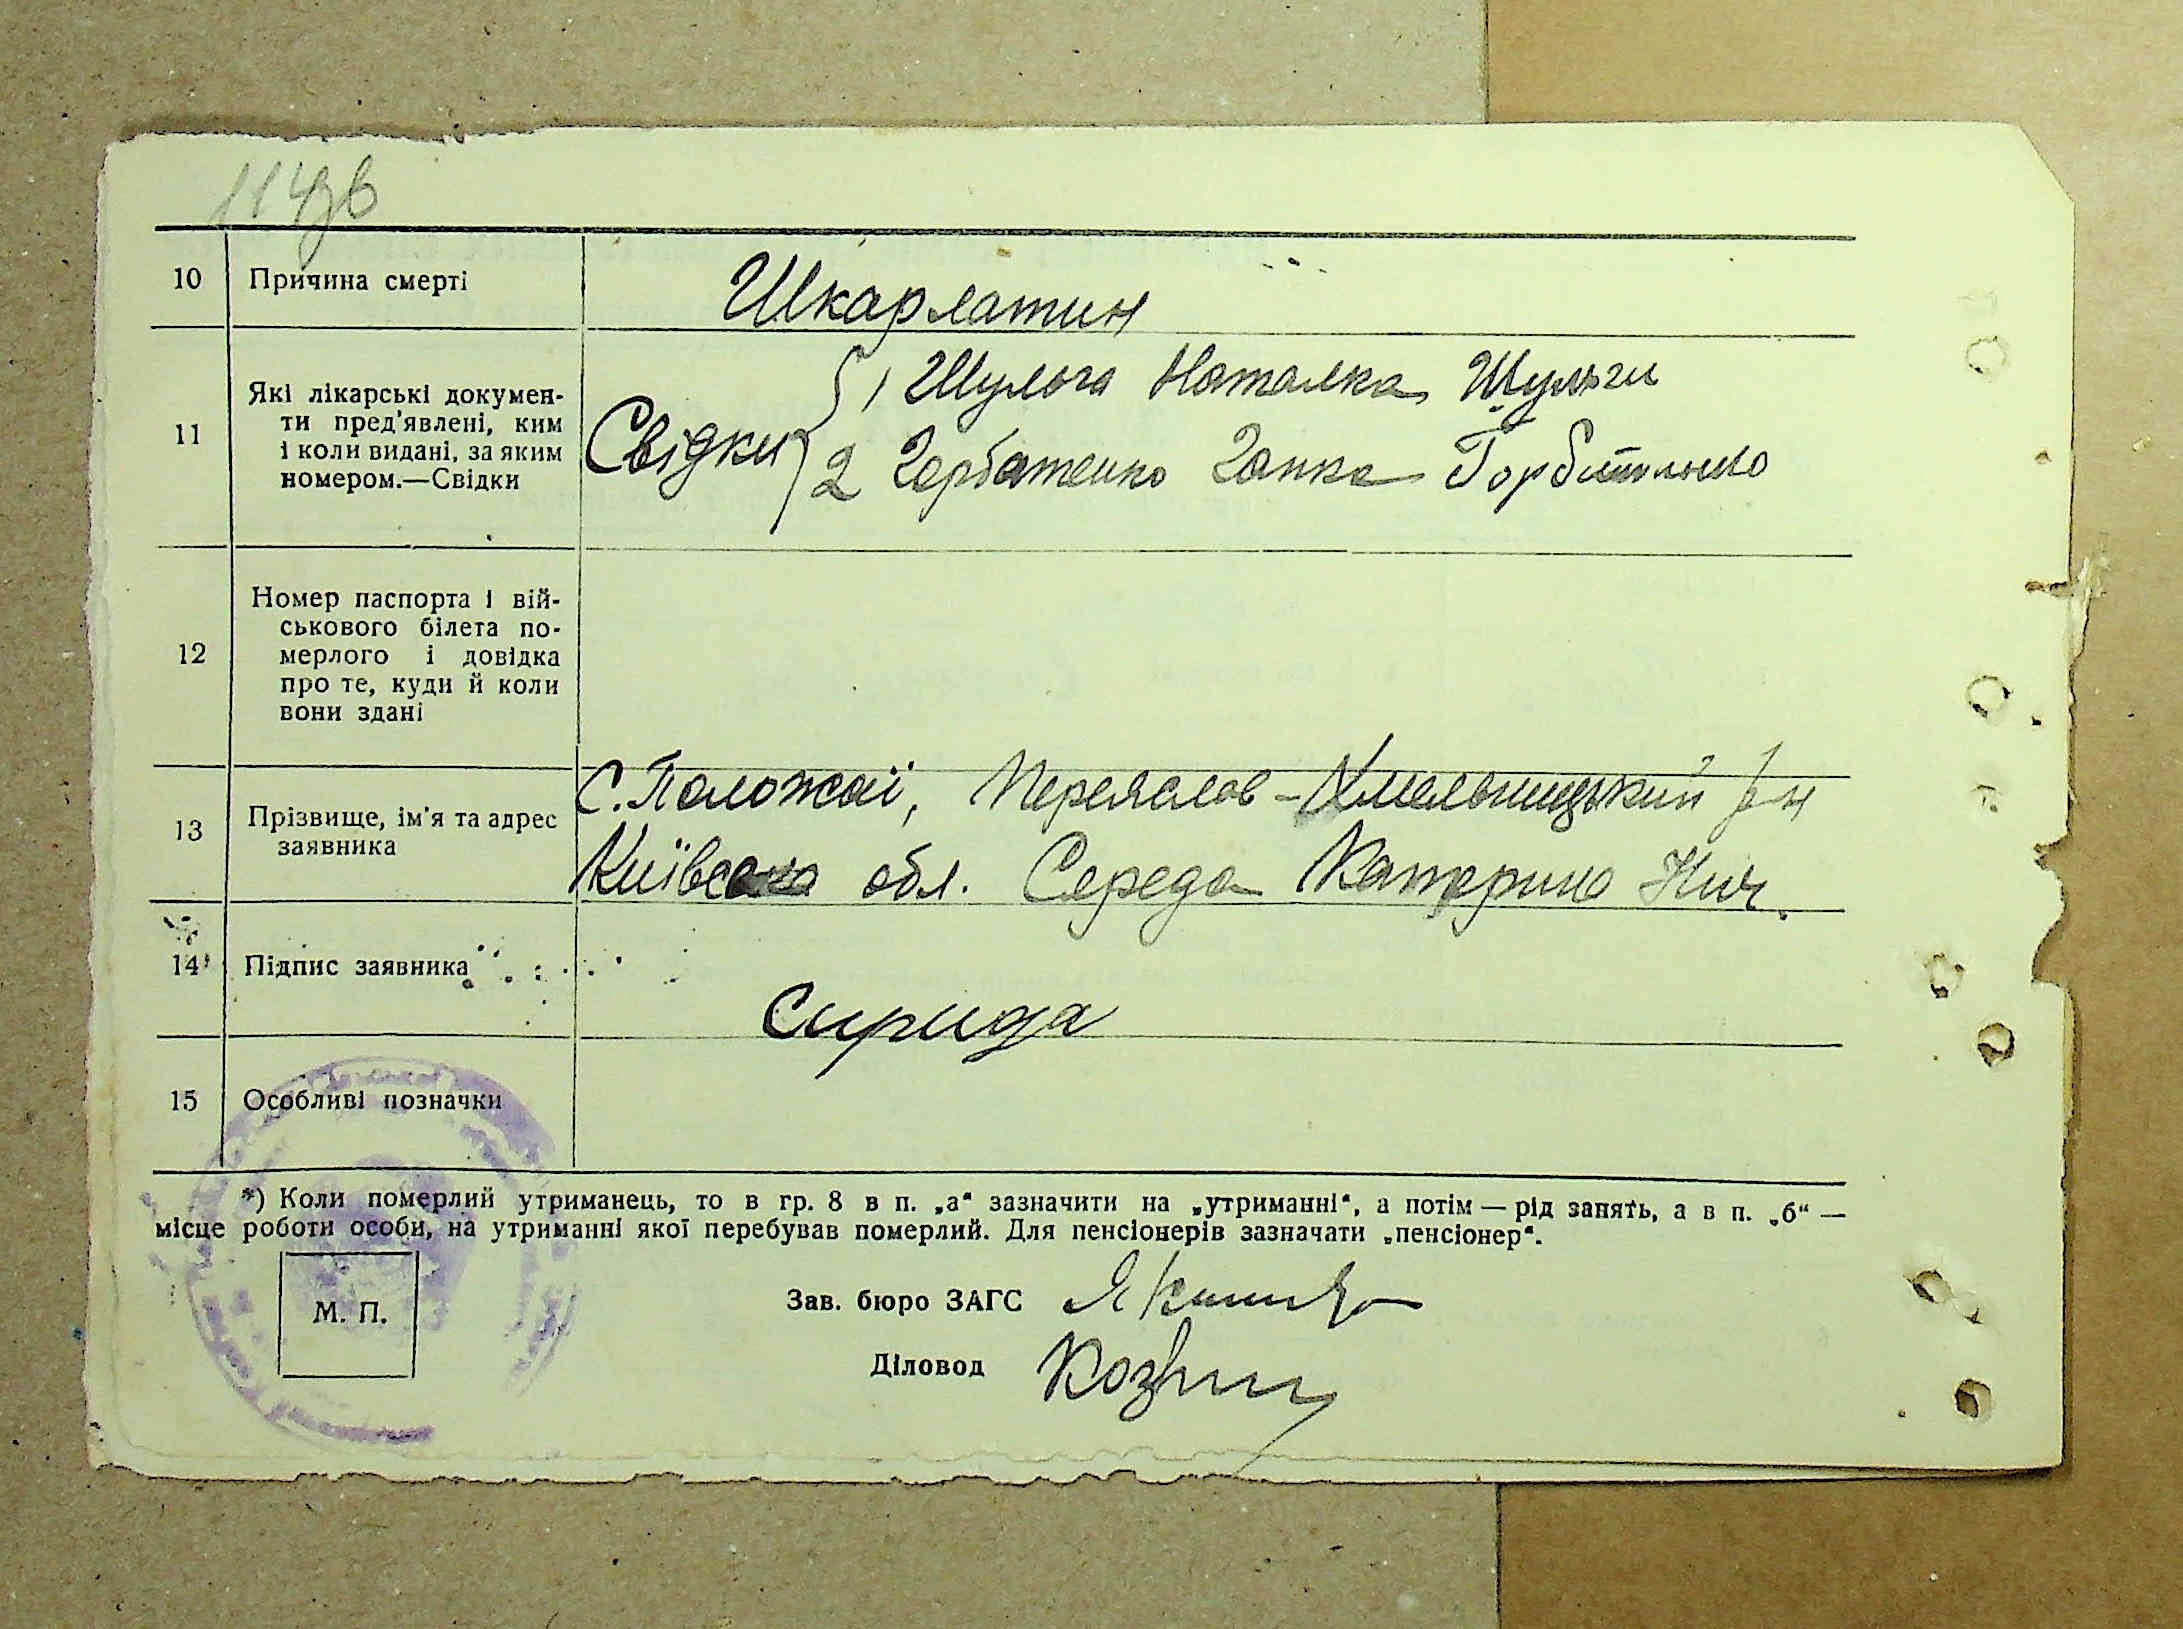 114зв
10 Причина смерті Шкарлатин
11 Які лікарські докумен-
ти пред'явлені, ким
і коли видані, за яким
номером.—Свідки
Свідки { 1 Шульга Наталка Шульги
2 Горбатенко Ганка Горбатенко
12 Номер паспорта і вій-
ськового білета по-
мерлого і довідка
про те, куди й коли
вони здані
13 Прізвище, ім'я та адрес
заявника
С. Положаї, Переяслов-Хмельницький р-н
Київська обл. Середа Катерина Нич.
14 Підпис заявника Сирида
15 Особливі позначки
*) Коли померлий утриманець, то в гр. 8 в п. „а“ зазначити на „утриманні“, а потім — рід занять, а в п. „б“ —
місце роботи особи, на утриманні якої перебував померлий. Для пенсіонерів зазначати „пенсіонер“.
М. П.
Зав. бюро ЗАГС
Діловод